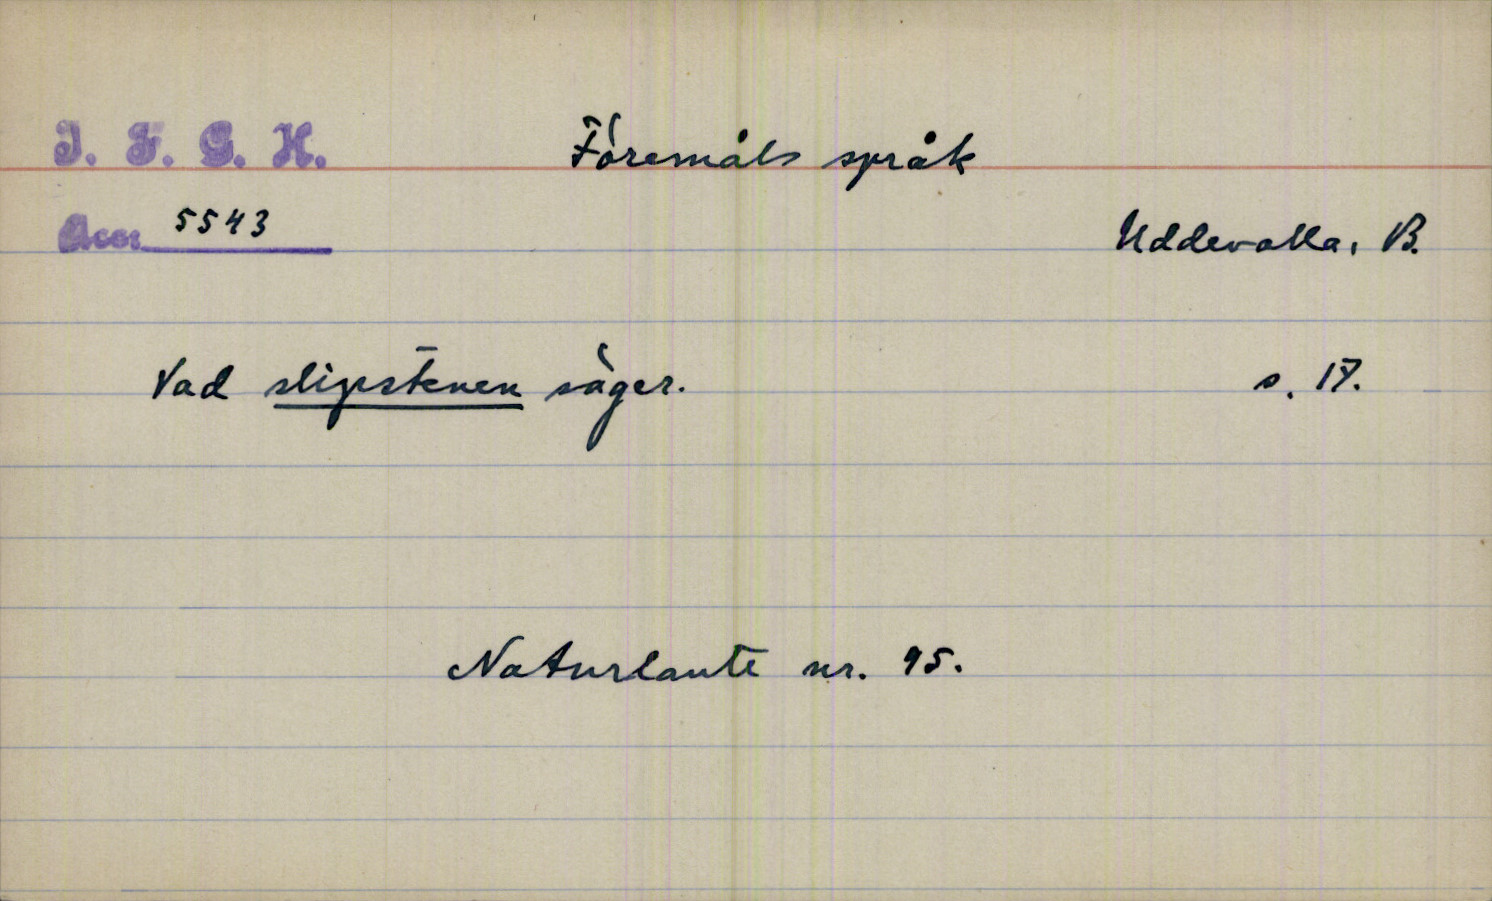 I. F. G. H.
Föremåls språk
Acc: 5543
Uddevalla, B.
Vad slipstenen säger.
s. 17.
Naturlaute nr. 95.